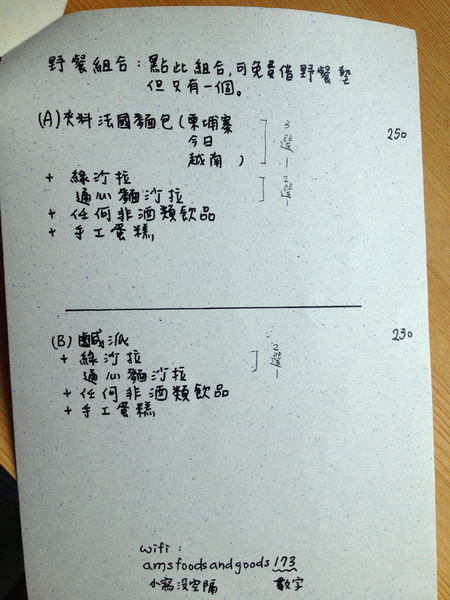 野餐組合：點此組合,可免費借野餐墊
但只有一個。
(A)夾料法國麵包(柬埔寨 3選1 250
今日
越南 )
+ 綠沙拉 2選1
通心麵沙拉
+ 任何非酒類飲品
+ 手工蛋糕
(B)鹹派 230
+ 綠沙拉 2選1
通心麵沙拉
+ 任何非酒類飲品
+ 手工蛋糕
wifi:
amsfoodsandgoods173
小寫沒空隔 數字